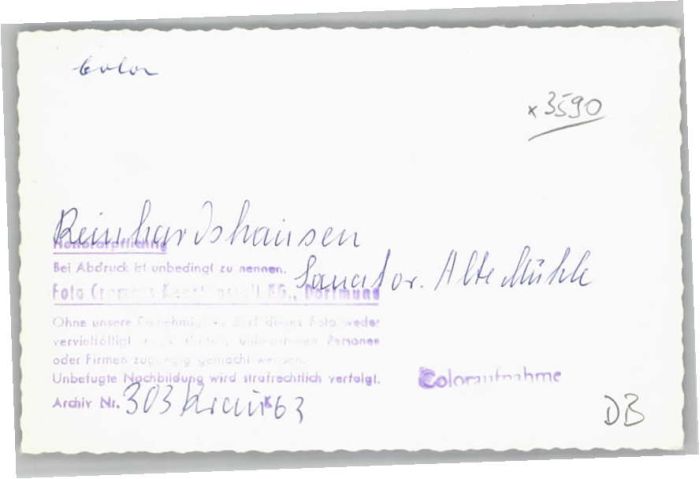 Color
x 3590
Reinhardshausen
Sanator. Alte Mühle
Honorarpflichtig
Bei Abdruck ist unbedingt zu nennen.
Foto Cramers Kunstanstalt KG., Dortmund
Ohne unsere Genehmigung darf dieses Foto weder
vervielfältigt Personen
oder Firmen zugängig gemacht werden.
Unbefugte Nachbildung wird strafrechtlich verfolgt.
Coloraufnahme
Archiv Nr. 303 63
DB